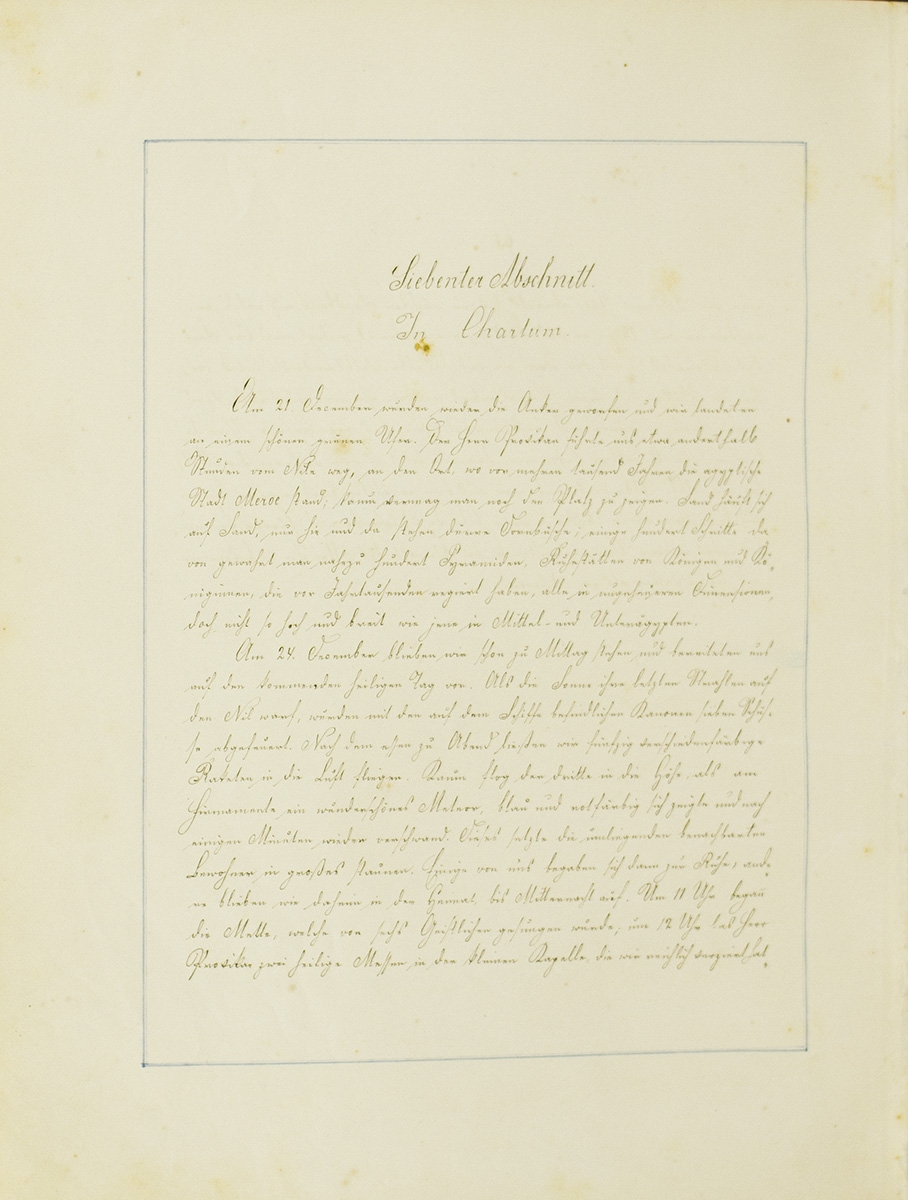 Siebenter Abschnitt.
In Chartum.
Am 21. December wurden wieder die Anker geworfen und wir landeten
an einem schönen grünen Ufer. Der Herr Provikar führte uns etwa anderthalb
Stunden vom Nile weg, an den Ort, wo vor mehren tausend Jahren die egyptische
Stadt Meroe stand; kaum vermag man noch den Platz zu zeigen. Sand häuft sich
auf Sand, nur hie und da stehen dürre Dornbüsche; einige hundert Schritte da
von gewahrt man nahezu hundert Pyramiden, Ruhestätten von Königen und Kö-
niginnen, die vor Jahrtausenden regiert haben, alle in ungeheueren Dimensionen,
doch nicht so hoch und breit wie jene in Mittel- und Unteregypten.
Am 24. December blieben wir schon zu Mittag stehen und bereiteten uns
auf den kommenden heiligen Tag vor. Als die Sonne ihre letzten Strahlen auf
den Nil warf, wurden mit den auf dem Schiffe befindlichen Kanonen sieben Schüs-
se abgefeuert. Nach dem essen zu Abend liessen wir fünfzig verschiedenfärbige
Raketen in die Luft fliegen. Kaum flog der dritte in die Höhe, als am
Firmamente ein wunderschönes Meteor, blau und rothfärbig sich zeigte und nach
einigen Minuten wieder verschwand. Dieses setzte die umliegenden benachbarten
Bewohner in großes staunen. Einige von uns begaben sich dann zur Ruhe, ande-
re blieben wie daheim in der Heimat, bis Mitternacht auf. Um 11 Uhr begann
die Mette, welche von sechs Geistlichen gesungen wurde; um 12 Uhr las Herr
Provikar zwei heilige Messen in der kleinen Kapelle, die wir reichlich verziert hat-